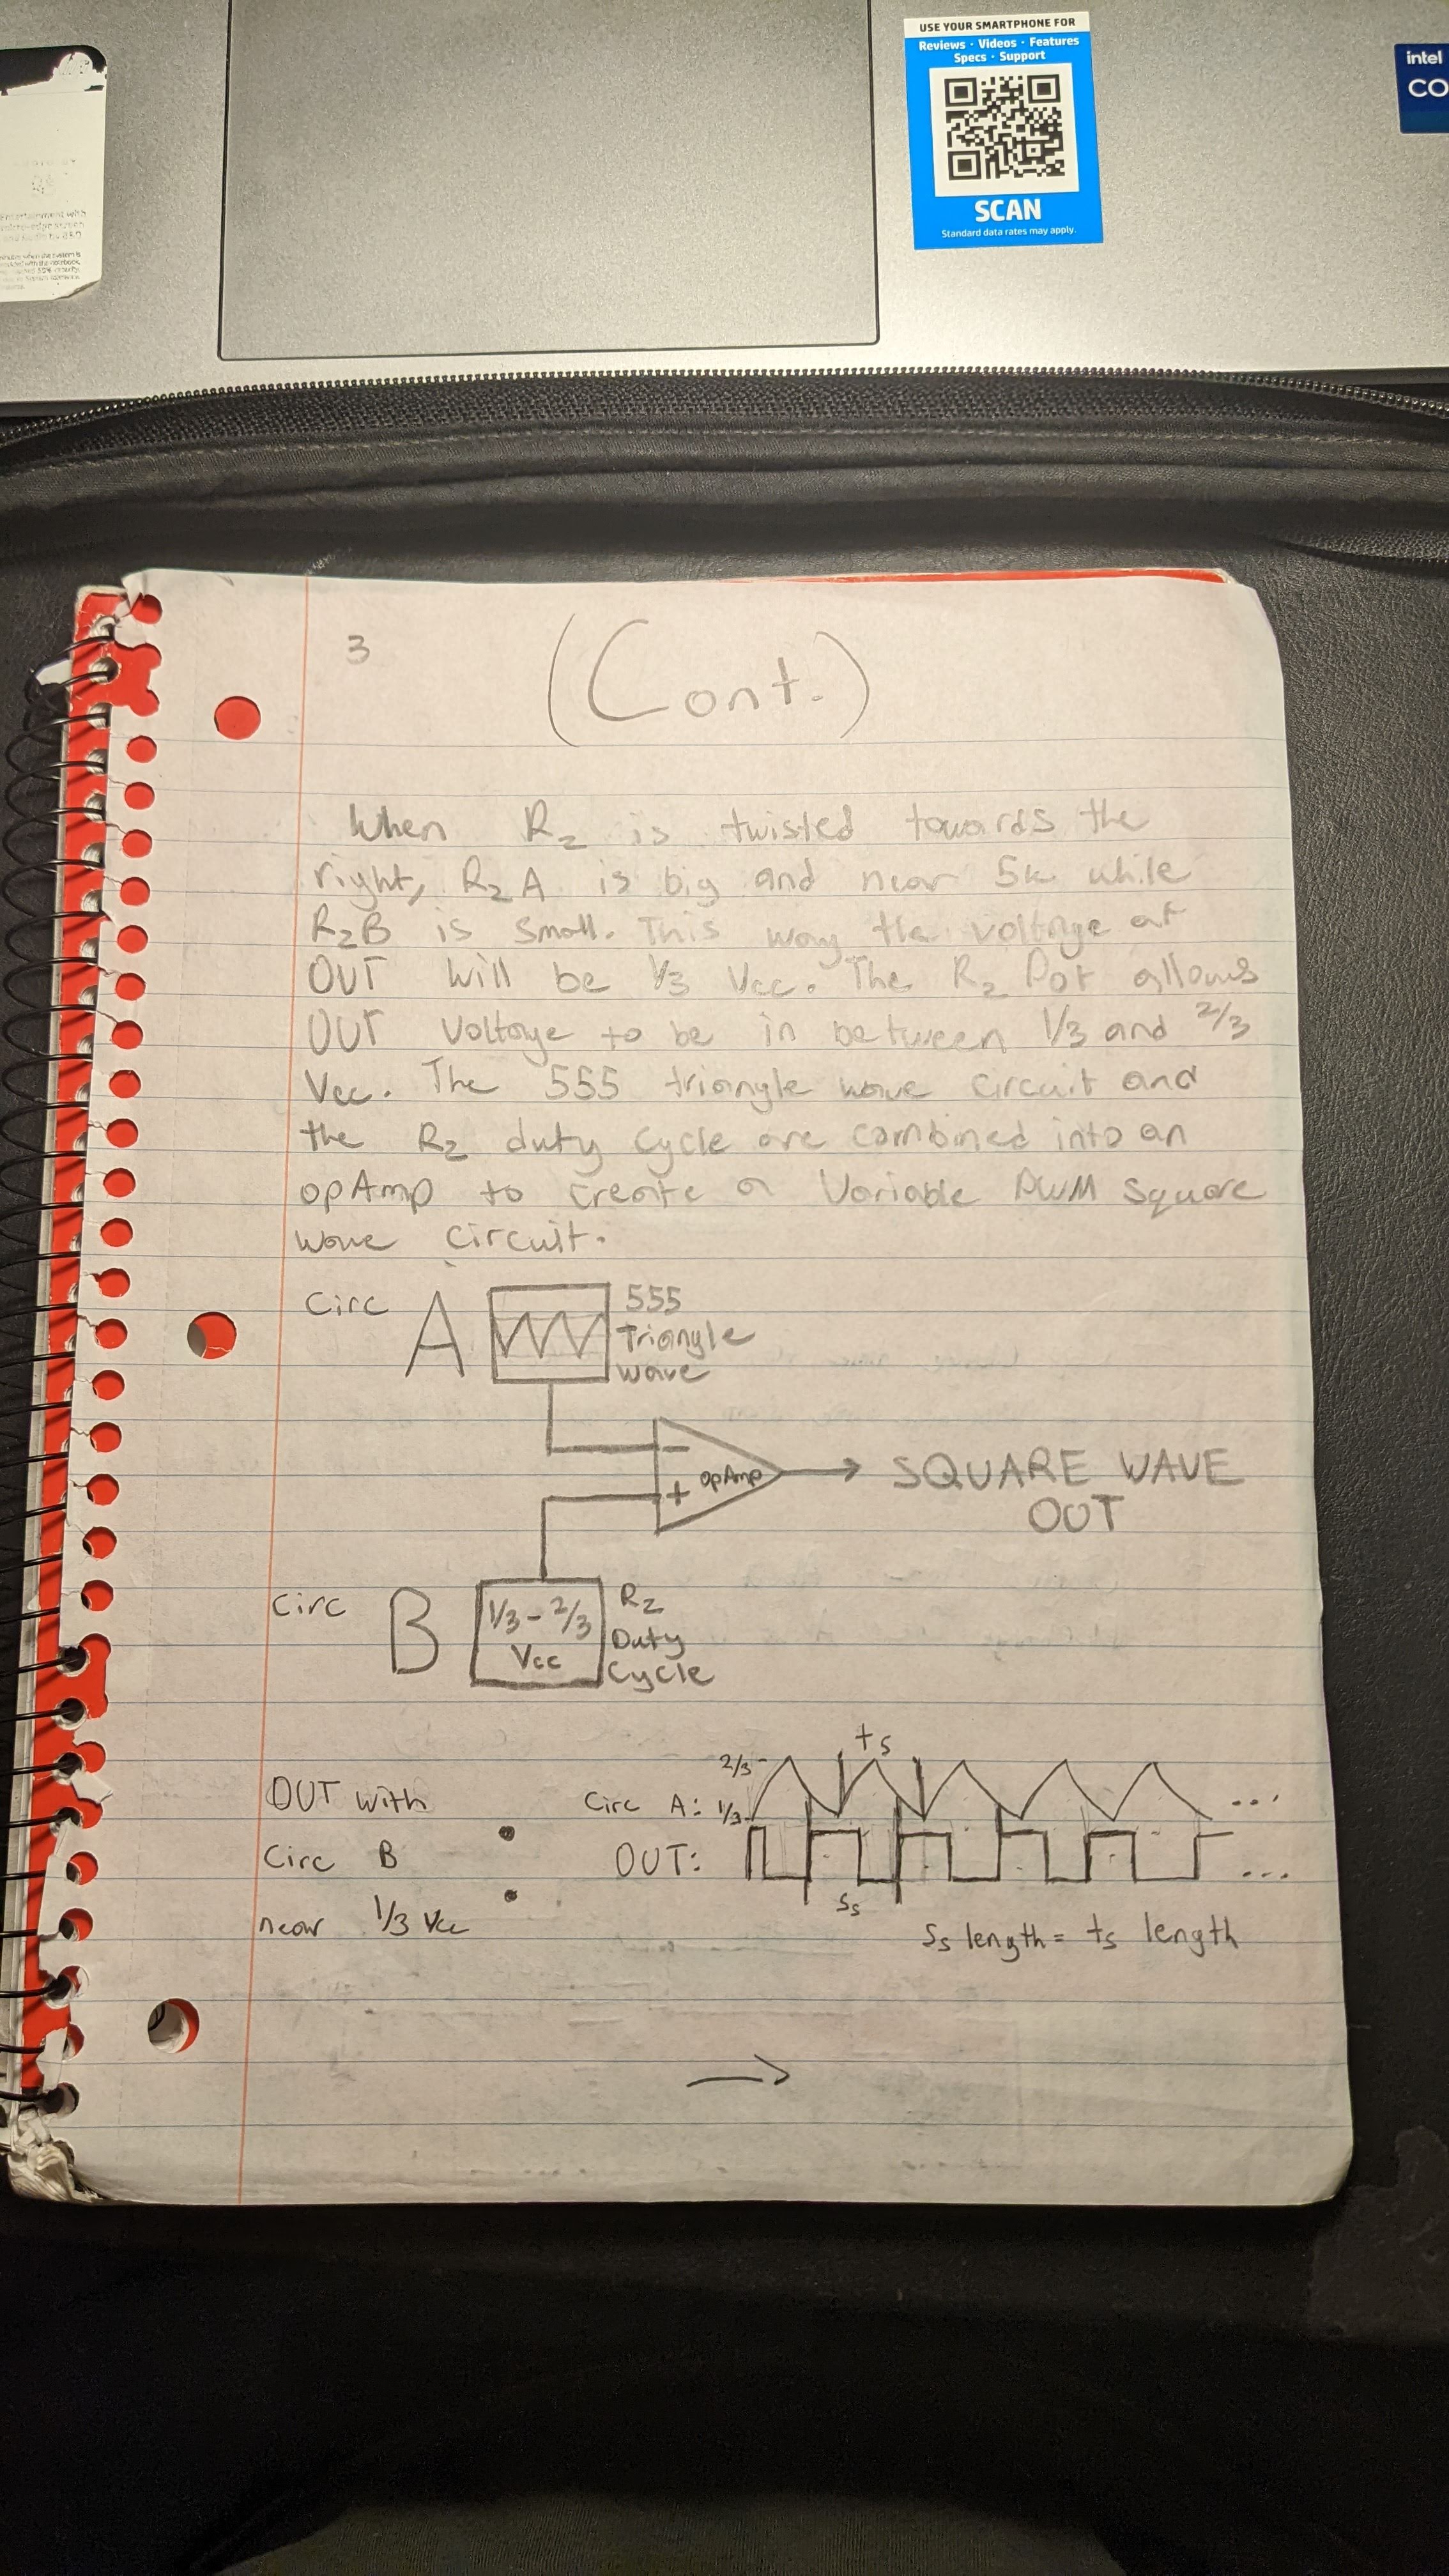 USE YOUR SMARTPHONE FOR
Reviews · Videos · Features
Specs · Support
SCAN
Standard data rates may apply.
intel
CO
3
(Cont.)
When R2 is twisted towards the
right, R2A is big and near 5k while
R2B is small. This way the voltage at
OUT will be 1/3 Vcc. The R2 Pot allows
OUT Voltage to be in between 1/3 and 2/3
Vcc. The 555 triangle wave circuit and
the R2 duty cycle are combined into an
opAmp to create a Variable PWM square
wave circuit.
Circ A
555
Triangle
wave
-
+ opAmp
SQUARE WAVE
OUT
Circ B
1/3 - 2/3
Vcc
R2
Duty
Cycle
OUT with
Circ B
near 1/3 Vcc
:
ts
2/3
Circ A: 1/3
...
OUT:
...
Ss
Ss length = ts length